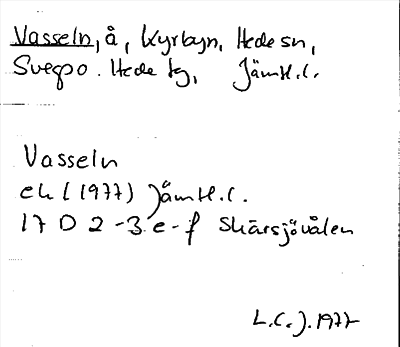 Vasseln, å, Kyrbyn, Hede sn,
Svegpo. Hede tg, Jämtl.l.
Vasseln
ek l (1977) Jämtl.l.
17 D 2-3 e-f Skärsjövålen
L.C.J. 1977